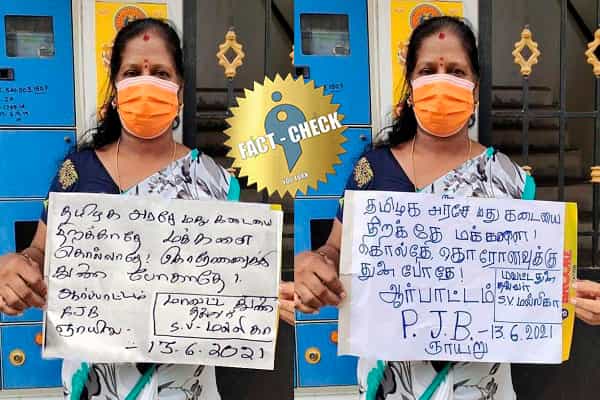 FACT-CHECK
YOU TURN
தமிழக அரசே மது கடையை
திறக்காதே மக்களை
கொல்லாதே!
போகாதே!
ஆர்பாட்டம்
BJB
மாவட்ட துணை
S.V-மல்லிகா
-13.6.2021
தமிழக அர்சே மது கடையை
திறக்தே மக்கனை!
கொல்தே கொரோனவுக்கு
துஅ போதே!
ஆர்பாட்டம்
P.J.B.-13.6.2021
ஞாயுறு
S.V.மல்லிகா